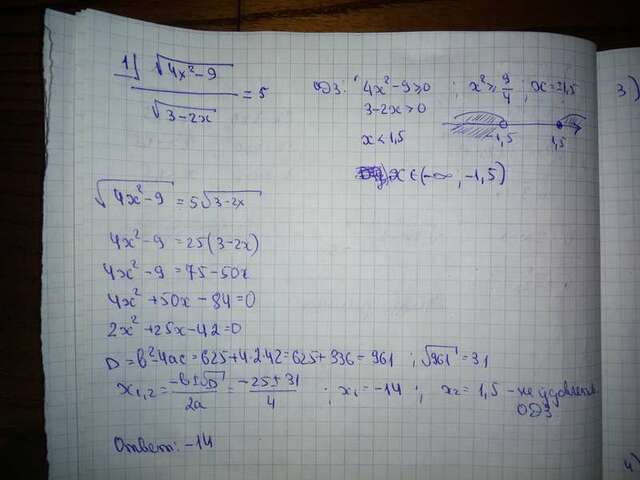 1) √(4x²-9) / √(3-2x) = 5
ОДЗ: { 4x²-9≥0 ; x²≥9/4 ; x=±1,5
3-2x>0
x<1,5
-1,5 1,5
x∈(-∞; -1,5)
√(4x²-9) = 5√(3-2x)
4x²-9=25(3-2x)
4x²-9=75-50x
4x²+50x-84=0
2x²+25x-42=0
D=b²-4ac=625+4·2·42=625+336=961 ; √961=31
x₁,₂ = (-b±√D)/2a = (-25±31)/4 ; x₁=-14 ; x₂=1,5 - не
ОДЗ
Ответ: -14
3)
4)